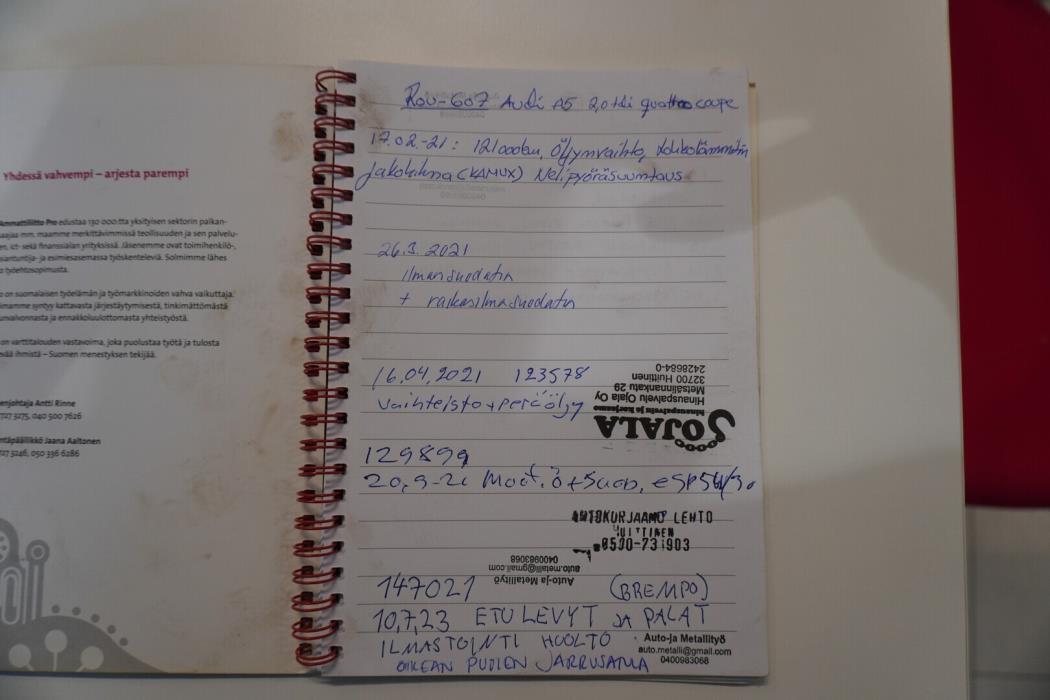 Yhdessä vahvempi – arjesta parempi
Ammattiliitto Pro edustaa 130 000:tta yksityisen sektorin palkan-
saajaa mm. maamme merkittävimmissä teollisuuden ja sen palvelu-
en, ict- sekä finanssialan yrityksissä. Jäsenemme ovat toimihenkilö-,
asiantuntija- ja esimiesasemassa työskenteleviä. Solmimme lähes
työehtosopimusta.
o on suomalaisen työelämän ja työmarkkinoiden vahva vaikuttaja.
imamme syntyy kattavasta järjestäytymisestä, tinkimättömästä
unvalvonnasta ja ennakkoluulottomasta yhteistyöstä.
on varttitalouden vastavoima, joka puolustaa työtä ja tulosta
vää ihmistä – Suomen menestyksen tekijää.
enjohtaja Antti Rinne
727 3275, 040 500 7626
ntäpäällikkö Jaana Aaltonen
727 3246, 050 336 6286
ROU-607 Audi A5 2,0 tdi quattro coupe
17.02.-21: 121000km, Öljynvaihto, Lohkolämmitin
Jakohihna (KAMUX) Nelipyöräsuuntaus
26.3.2021
ilmansuodatin
+ raikasilmasuodatin
16.04.2021 123578
Vaihteisto + peräöljy
OJALA
Hinauspalvelu ja korjaamo
Hinauspalvelu Ojala Oy
Metsälinnankatu 29
32700 Huittinen
2428684-0
129899
20,9-21 Moot.Ö + Suod, ESP 5W/30
AUTOKORJAAMO LEHTO
HUITTINEN
0500-731903
Auto-ja Metallityö
auto.metalli@gmail.com
0400983068
147021 (BREMPO)
10,7,23 ETU LEVYT JA PALAT
ILMASTOINTI HUOLTO
OIKEAN PUOLEN JARRUSATULA
Auto-ja Metallityö
auto.metalli@gmail.com
0400983068